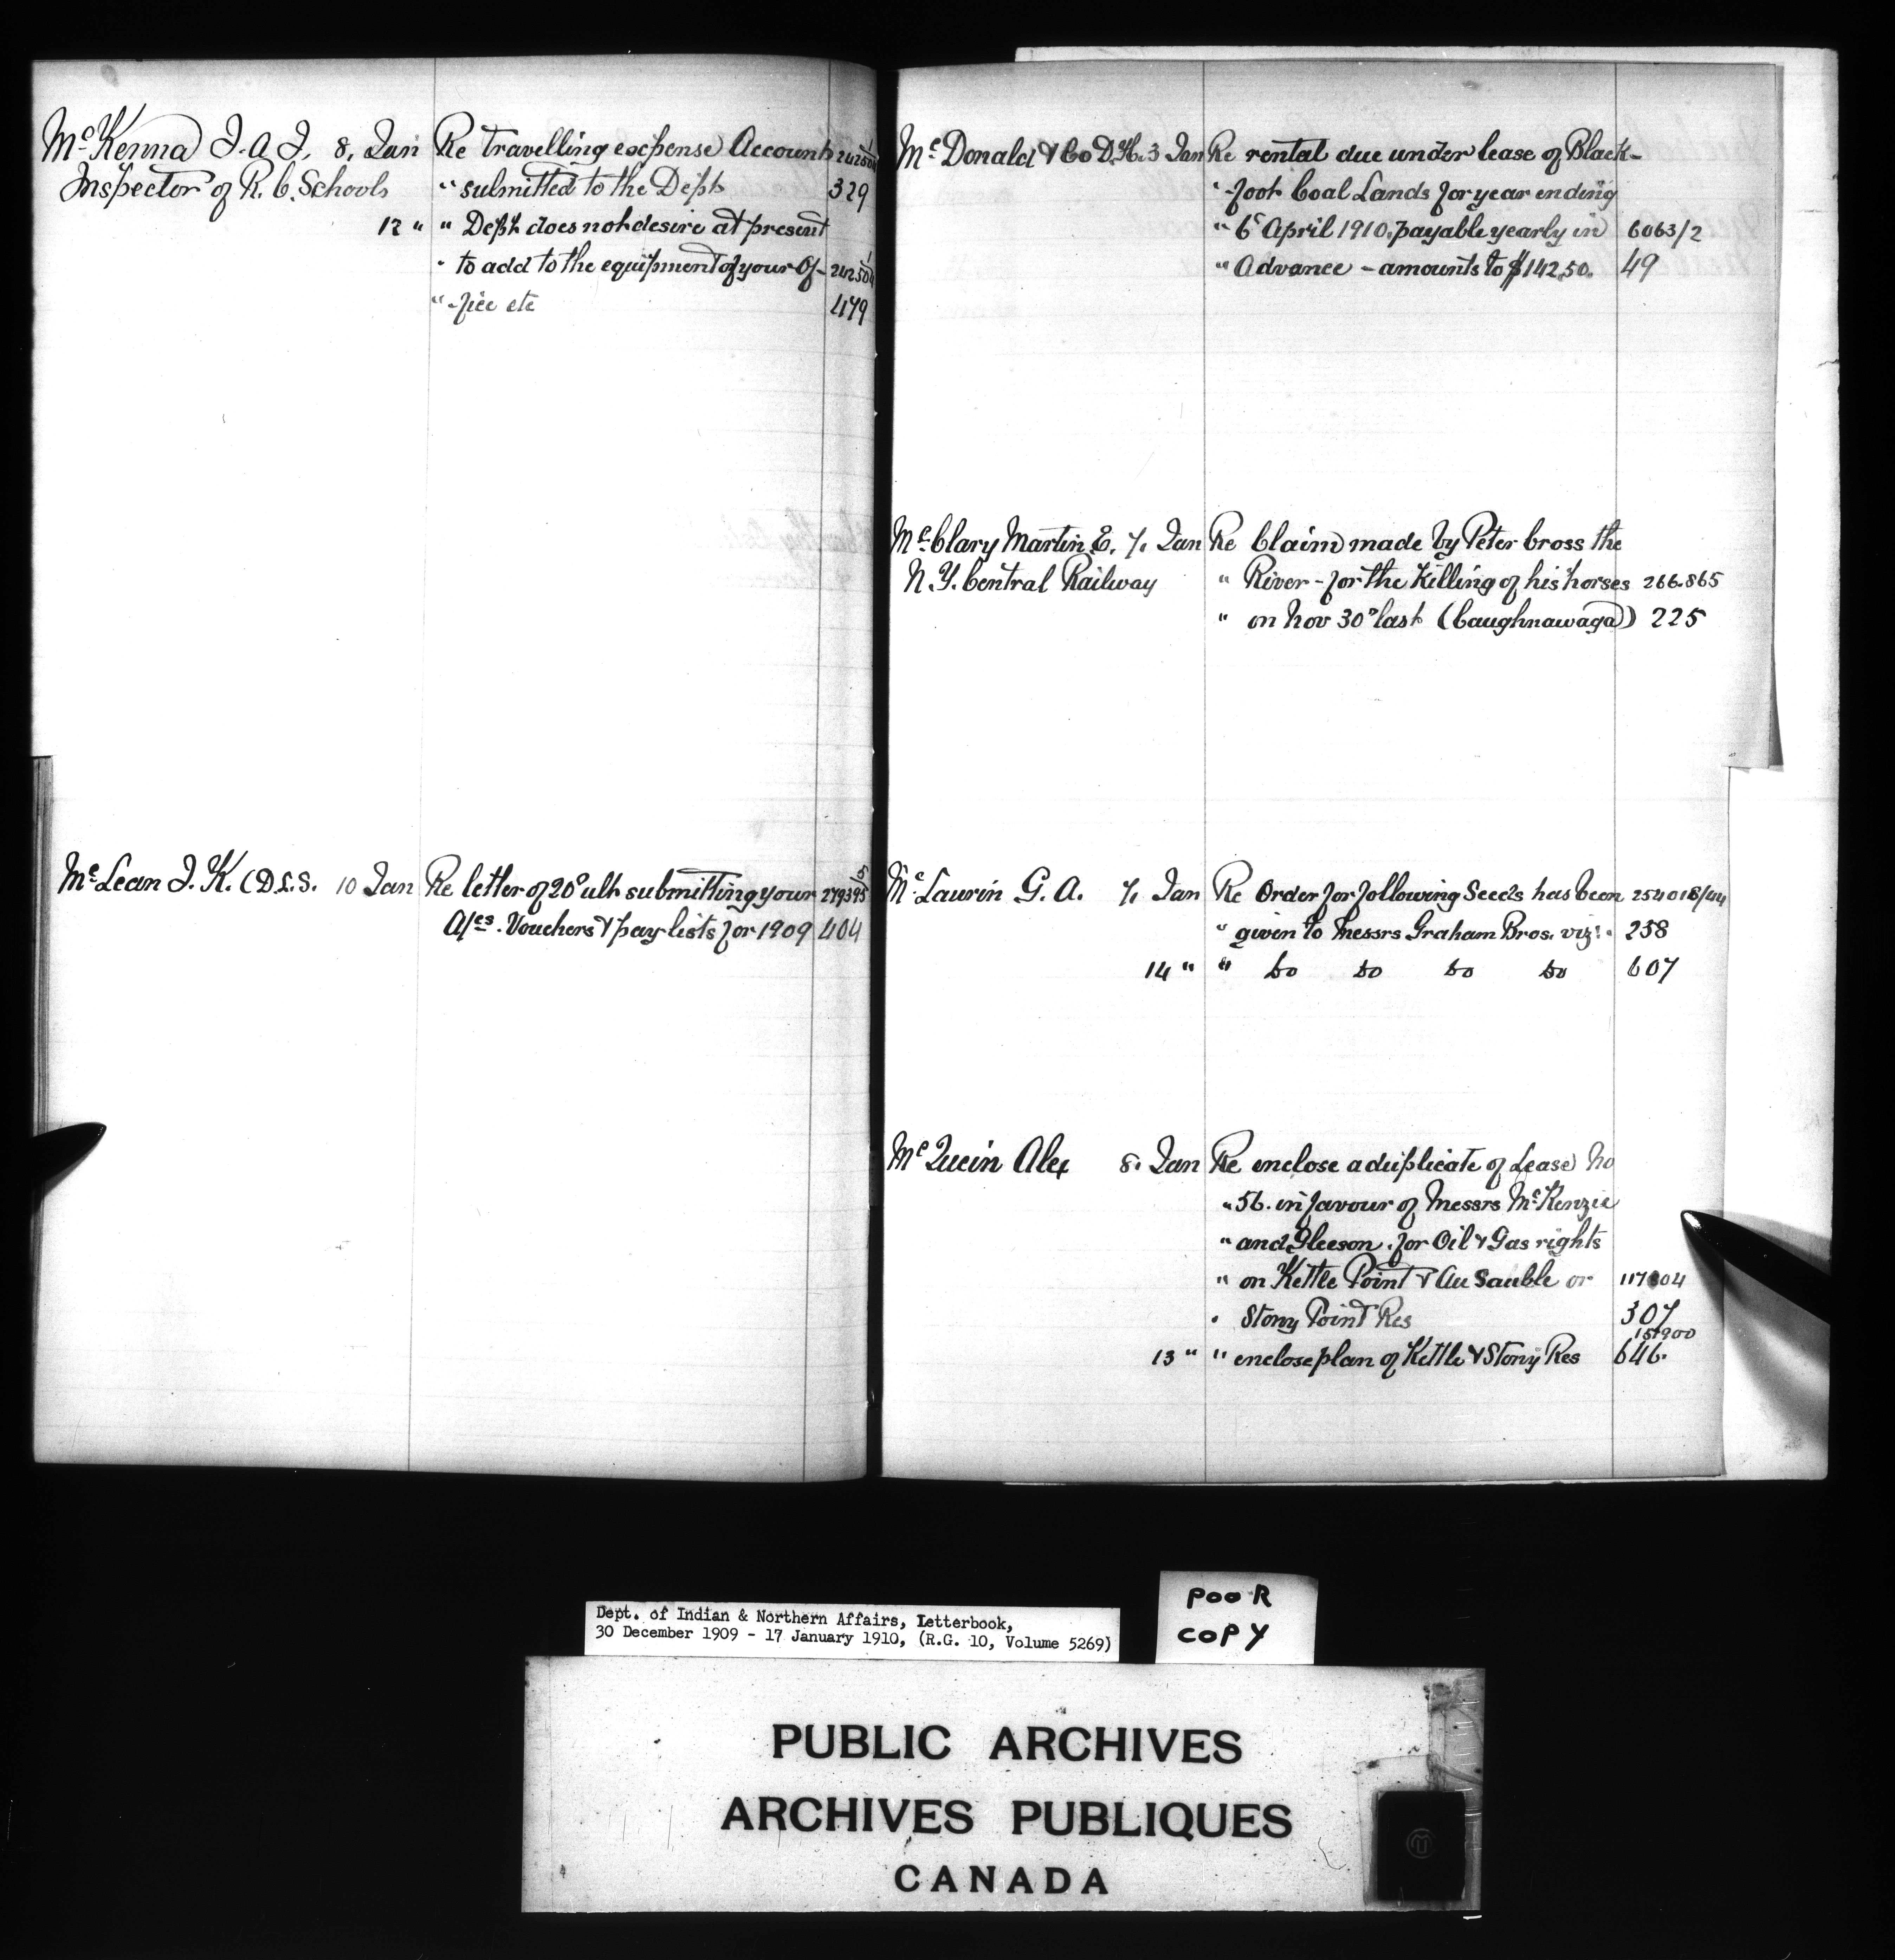 McKenna J. A. J. 8, Jan Re travelling expense Accounts
Inspector of R. C. Schools " submitted to the Dept 329
12 " " Dept does not desire at present
" to add to the equipment of your Of-
" -fice etc 479
McLean J. K. (D.L.S. 10 Jan Re letter of 20º ult submitting your 279393/5
A/cs. Vouchers & pay-lists for 1909 404
McDonald & Co D.H. 3 Jan Re rental due under lease of Black-
" -foot Coal Lands for year ending
" 6º April 1910, payable yearly in 6063/2
" Advance - amounts to $142.50. 49
McClary Martin E. 7. Jan Re Claim made by Peter Cross the
N.Y. Central Railway " River - for the Killing of his horses 266.865
" on Nov 30º last (Caughnawaga) 225
McLaurin G. A. 7. Jan Re Order for following Seeds has been 254018/44
" given to Messrs Graham Bros. viz: 258
14 " " Do Do Do Do 607
Mc Alex 8. Jan Re enclose a duplicate of Lease No
" 56. in favour of Messrs McKenzie
" and Gleeson. for Oil & Gas rights
" on Kettle Point & Au Sauble or 117804
" Stony Point Res 307
151900
13 " " enclose plan of Kettle & Stony Res 646.
Dept. of Indian & Northern Affairs, Letterbook,
30 December 1909 - 17 January 1910, (R.G. 10, Volume 5269)
POOR
COPY
PUBLIC ARCHIVES
ARCHIVES PUBLIQUES
CANADA